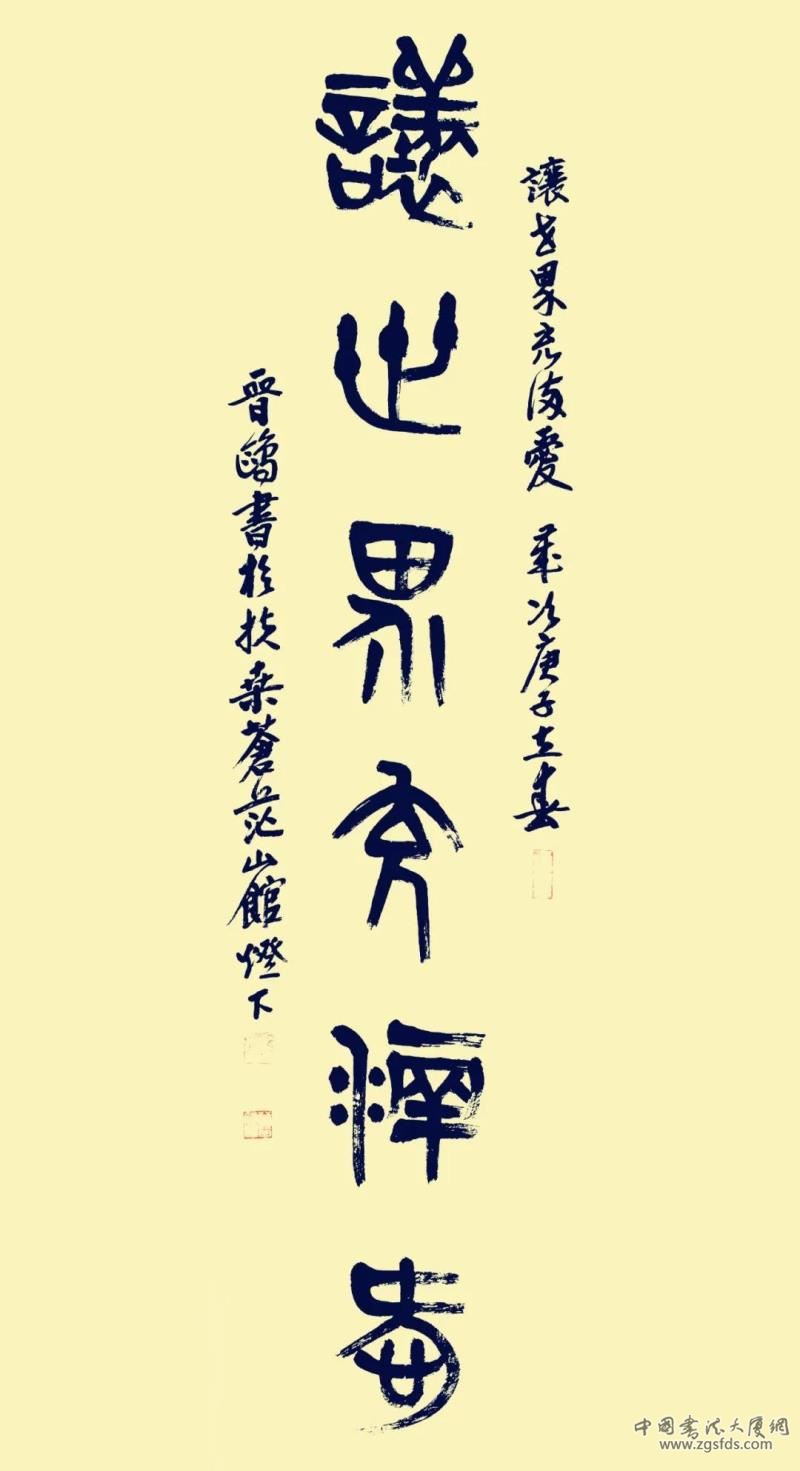 讓世界充滿愛 歲次庚子立春
讓世界充滿愛
晉鷗書於扶桑蒼茫山館燈下
中國書法大厦網
www.zgsfds.com